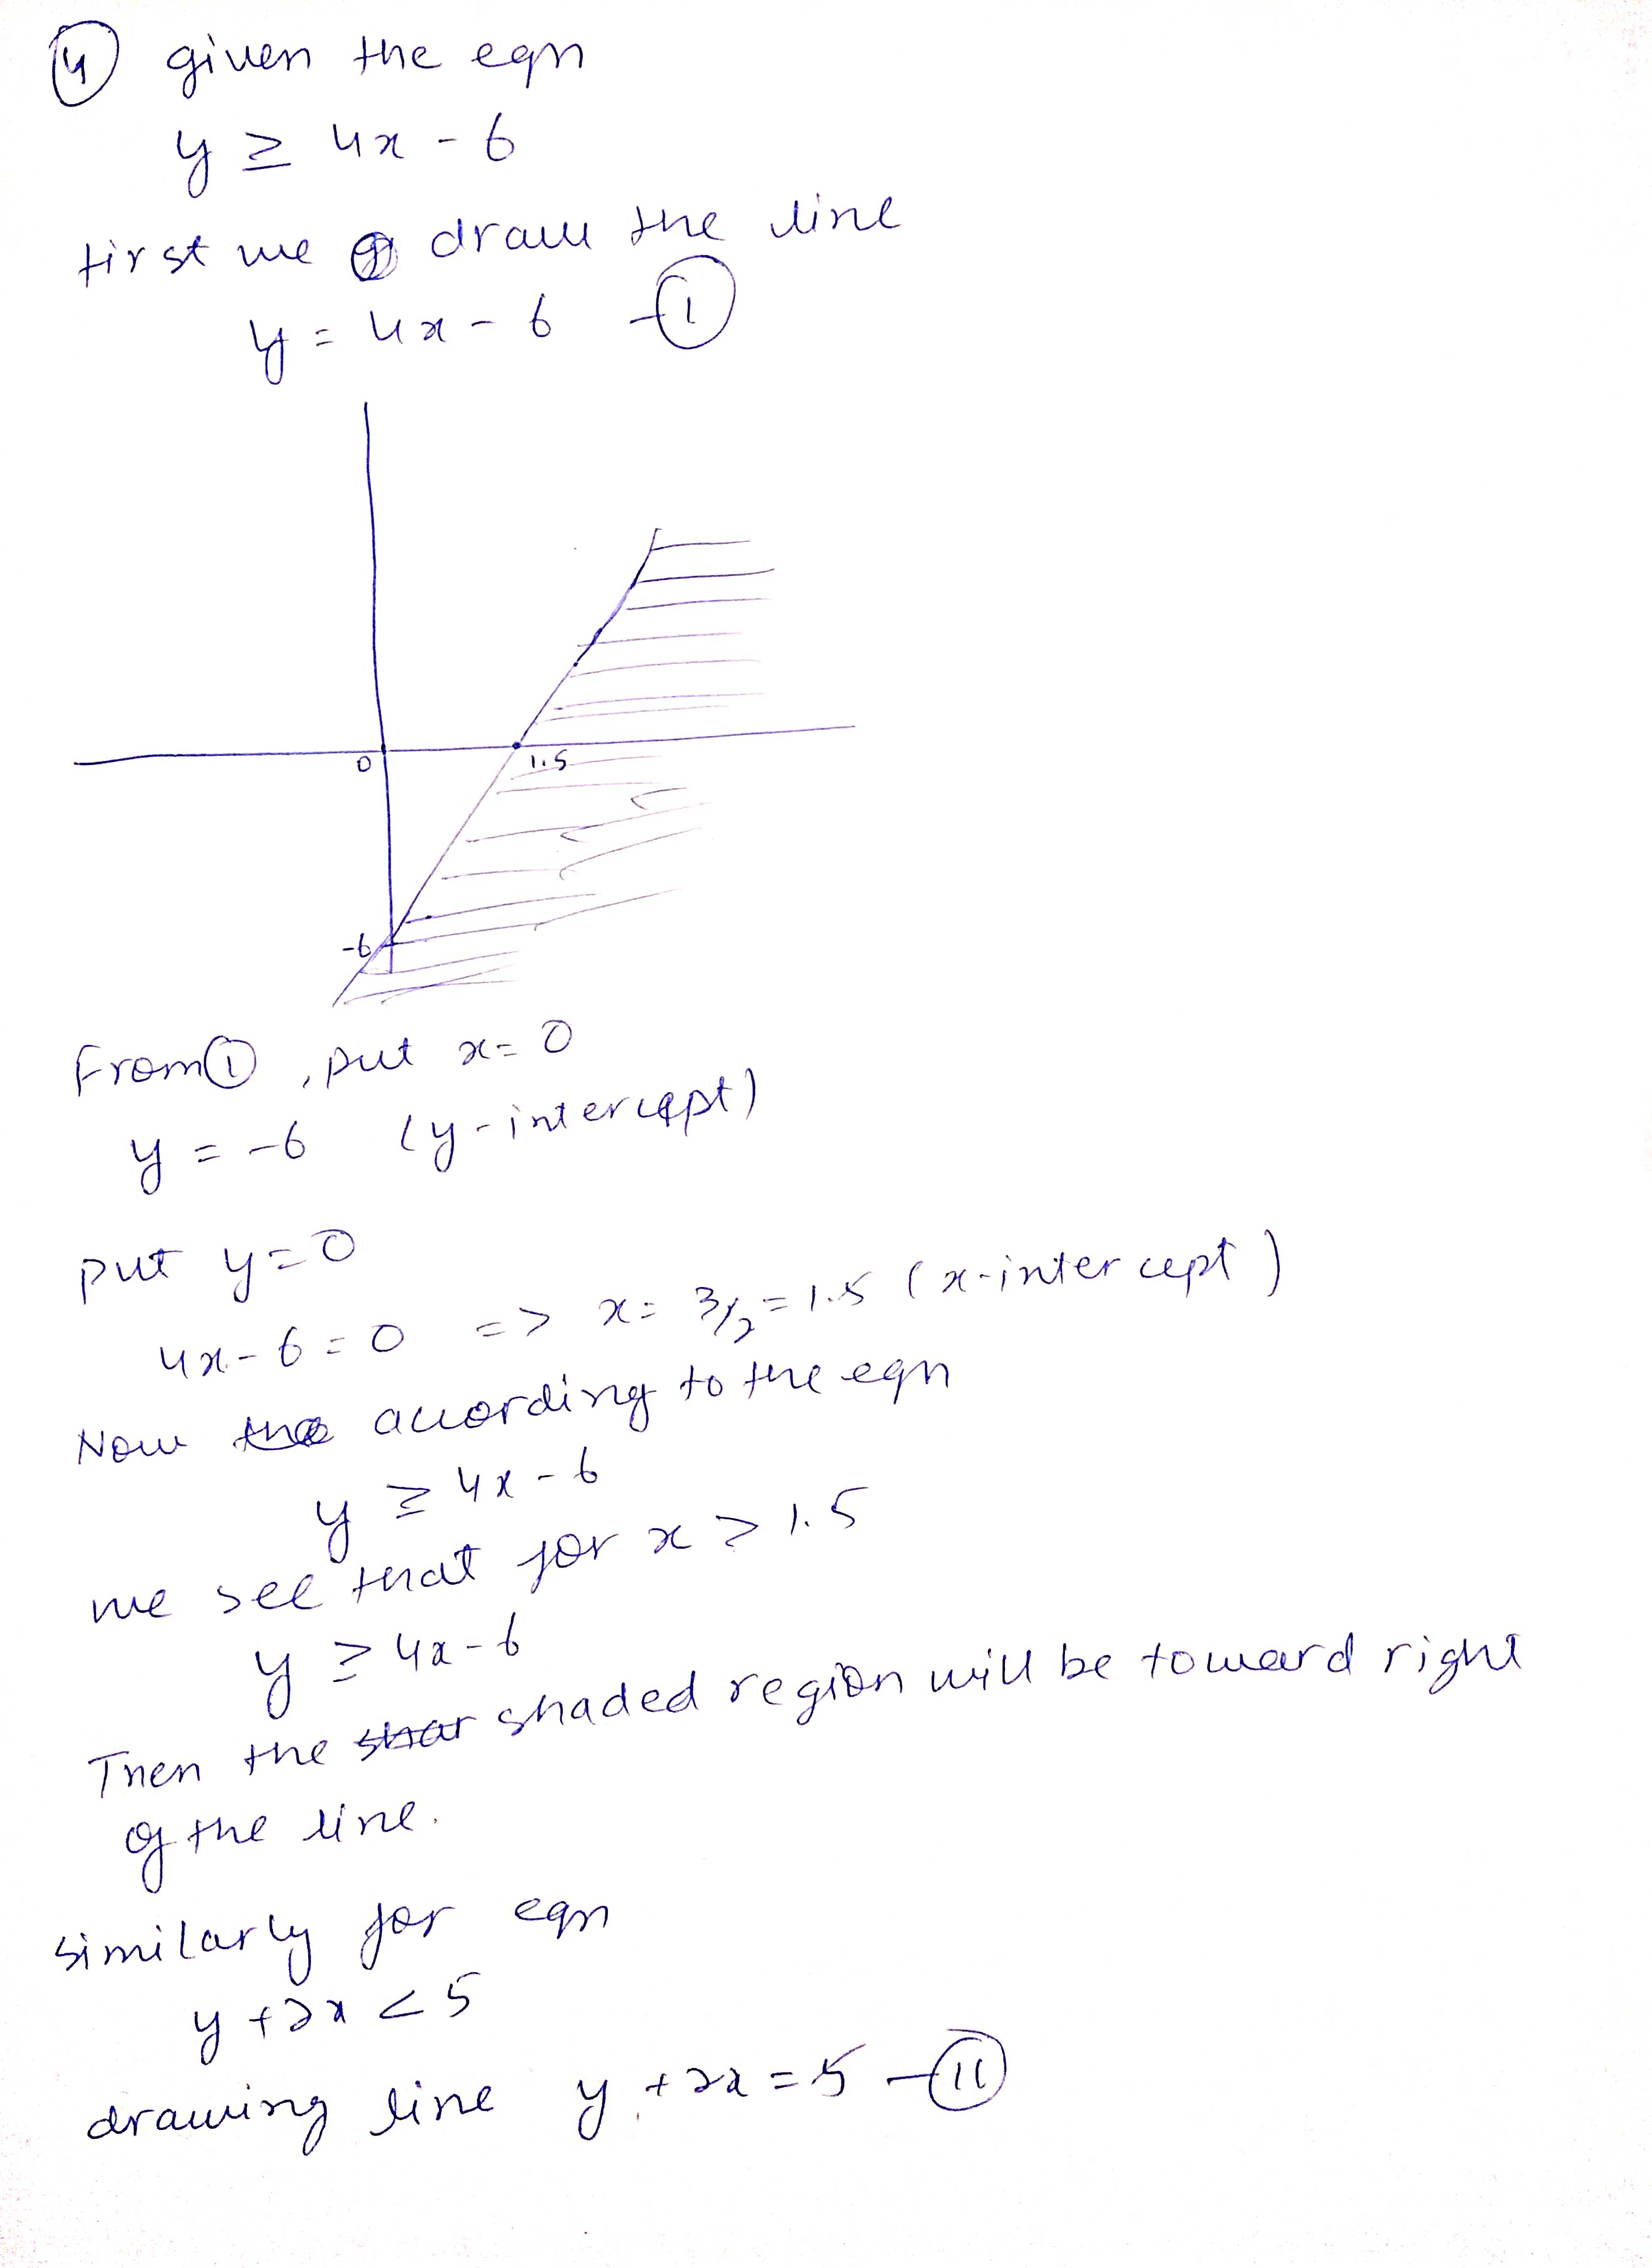 ④ given the eqn
y ≥ 4x - 6
first we draw the line
y = 4x - 6 - ①
0
1.5
-6
From ①, put x = 0
y = -6 (y-intercept)
put y = 0
4x - 6 = 0 => x = 3/2 = 1.5 (x-intercept)
Now according to the eqn
y ≥ 4x - 6
we see that for x > 1.5
y ≥ 4x - 6
Then the shaded region will be toward right
of the line.
similarly for eqn
y + 2x < 5
drawing line y + 2x = 5 - ⑪